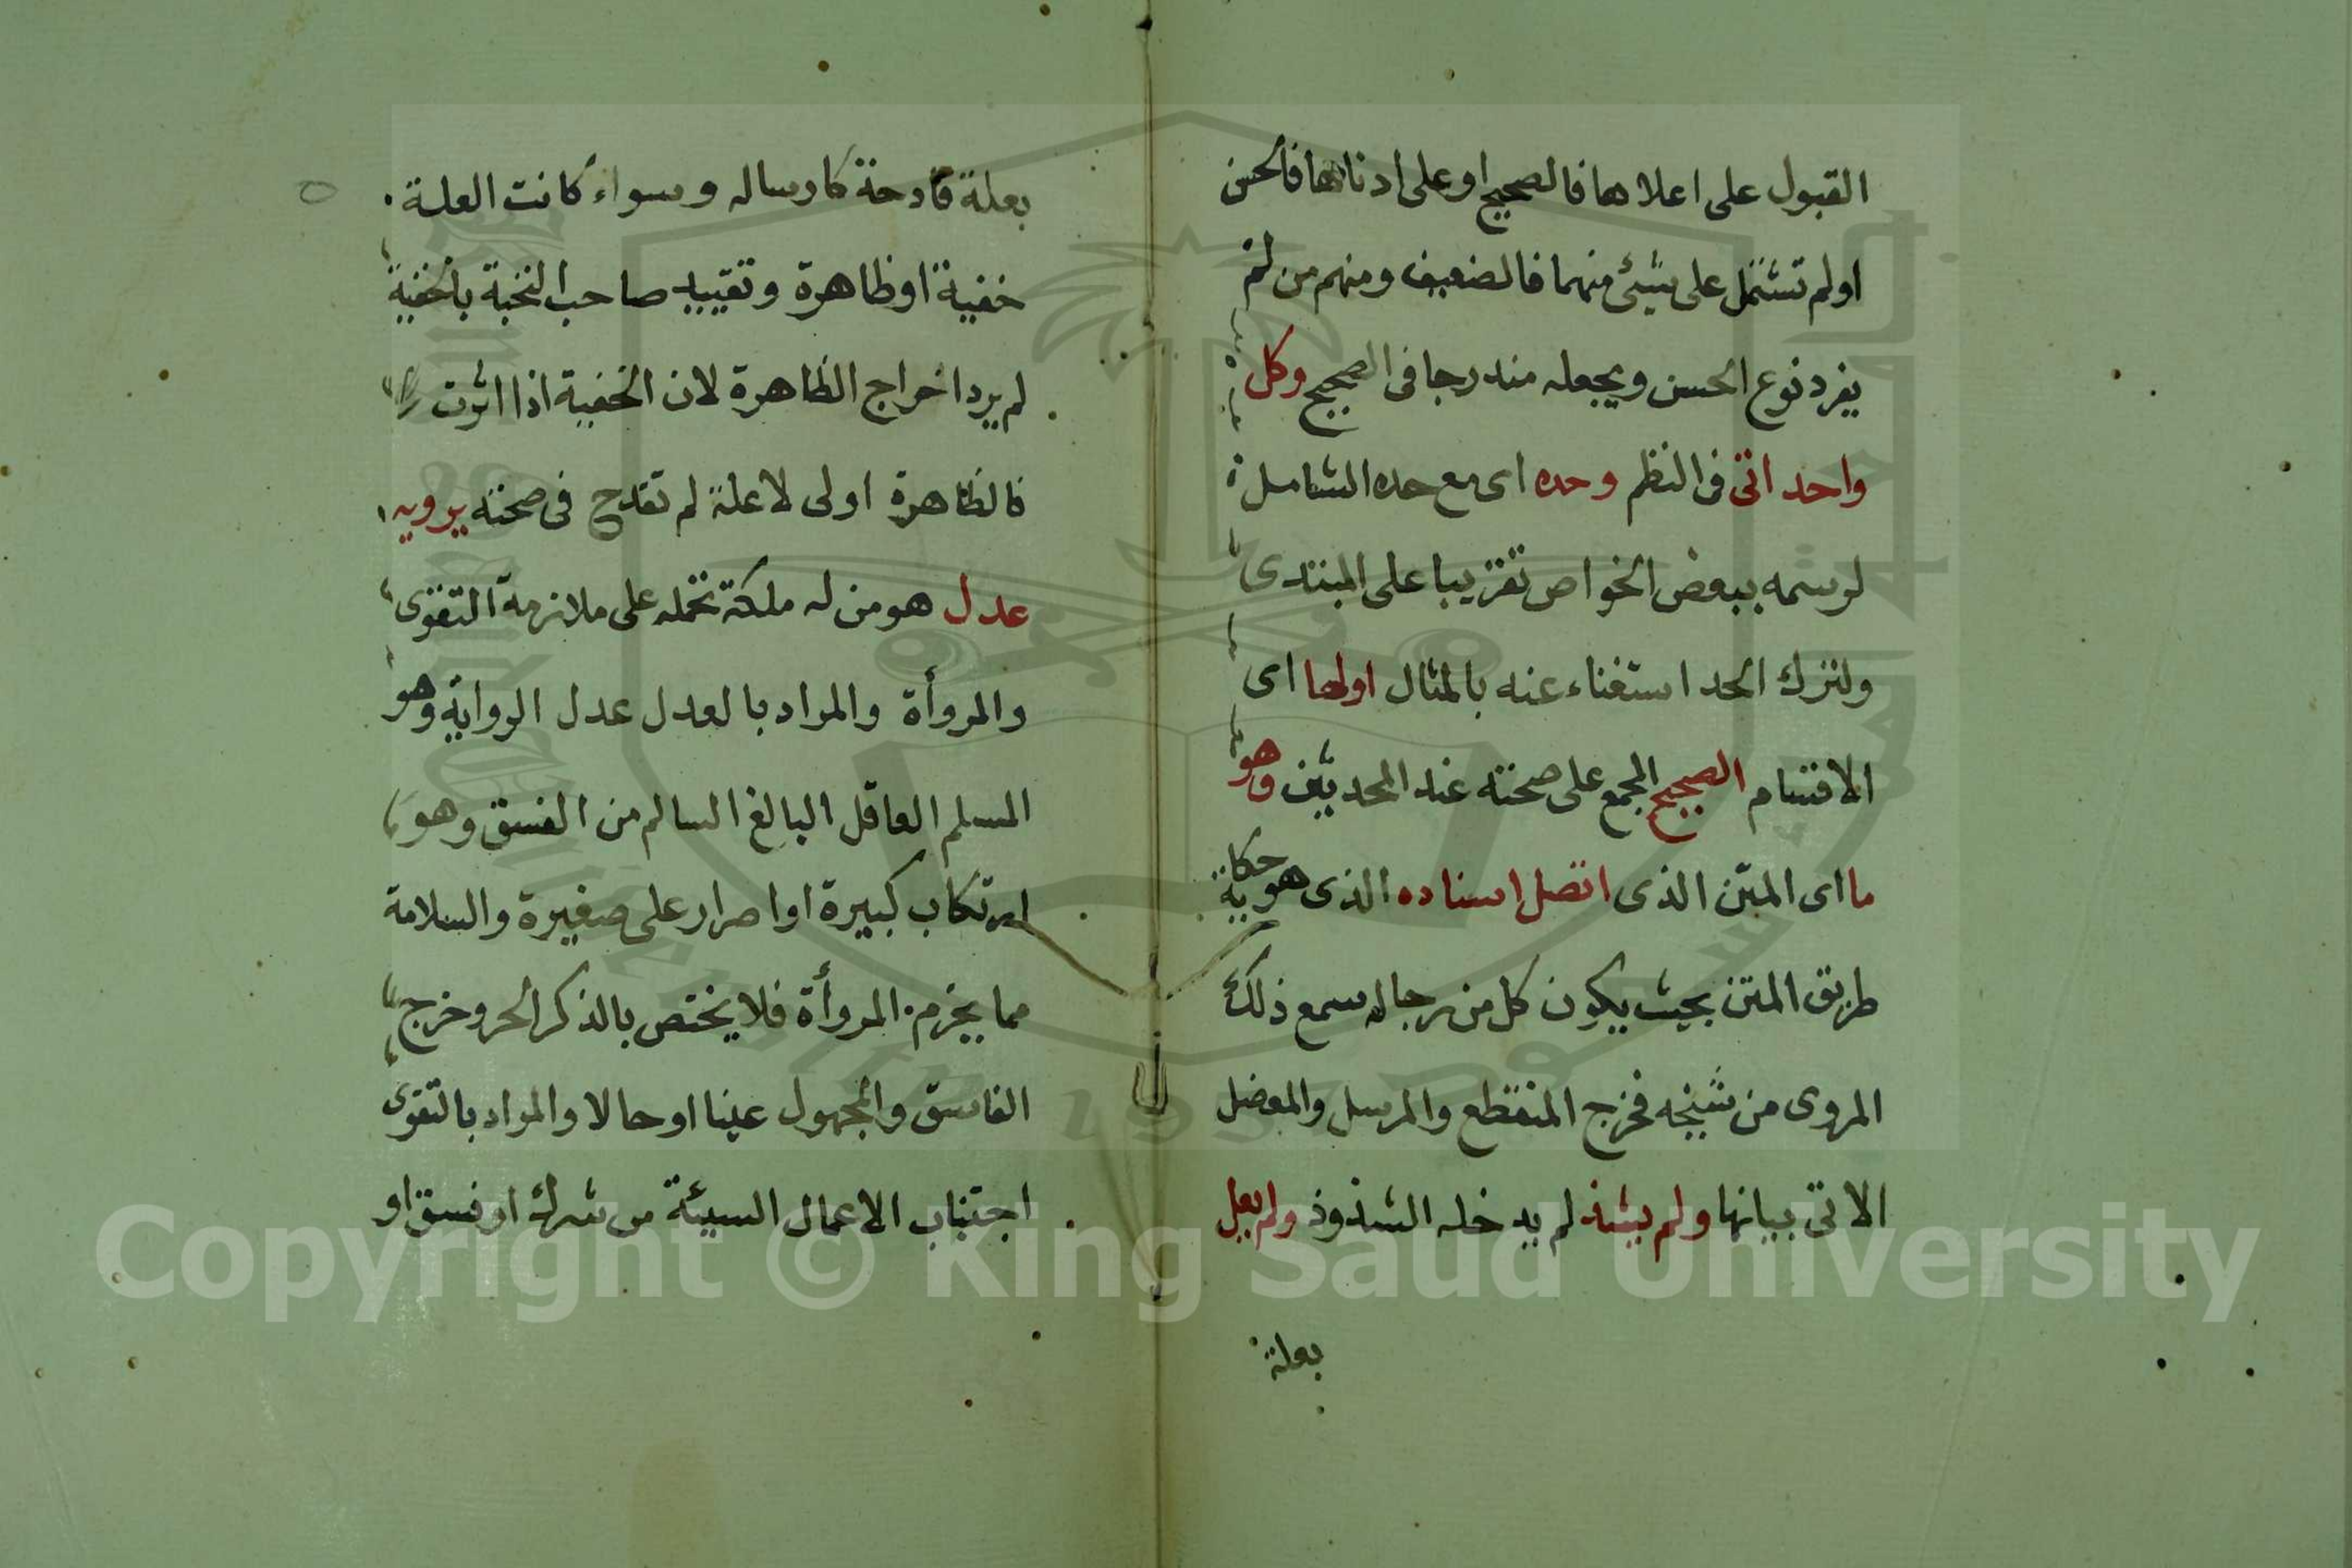 القبول على اعلاها فالصحيح او على ادناها فالحسن
او لم تشتمل على شئ منهما فالضعيف ومنهم من لم
يفرد نوع الحسن ويجعله مندرجا فى الصحيح وكل
واحد اتى فى النظم وحده اى مع حده الشامل
لرسمه ببعض الخواص تقريبا على المبتدى
ولترك الحد استغناء عنه بالمثال اولها اى
الاقسام الصحيح المجمع على صحته عند المحدثين وهو
ما اى المتن الذى اتصل اسناده الذى هو حكاية
طريق المتن بحيث يكون كل من رجاله سمع ذلك
المروى من شيخه فخرج المنقطع والمرسل والمعضل
الاتى بيانها ولم يشذ لم يدخله الشذوذ ولم يعل
بعلة
بعلة قادحة كارساله وسواء كانت العلة
خفية او ظاهرة وتقييد صاحب النخبة بالخفية
لم يرد اخراج الظاهرة لان الخفية اذا اثرت
فالظاهرة اولى لا علة لم تقدح فى صحته يرويه
عدل هو من له ملكة تحمله على ملازمة التقوى
والمروأة والمراد بالعدل عدل الرواية وهو
المسلم العاقل البالغ السالم من الفسق وهو
ارتكاب كبيرة او اصرار على صغيرة والسلامة
مما يخرم المروأة فلا يختص بالذكر الحر وخرج
الفاسق والمجهول عينا او حالا والمراد بالتقوى
اجتناب الاعمال السيئة من شرك او فسق او
Copyright © King Saud University